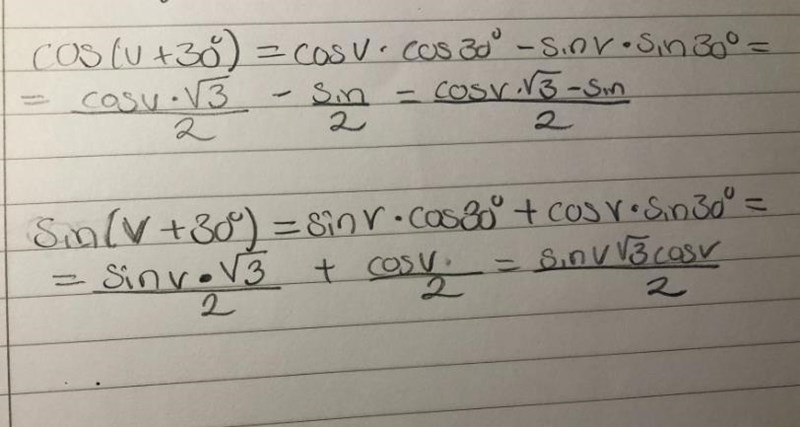 cos(v+30°) = cosv · cos30° - sinv · sin30° =
= cosv·√3/2 - sin/2 = cosv·√3-sin/2
sin(v+30°) = sinv · cos30° + cosv · sin30° =
= sinv·√3/2 + cosv·/2 = sinv√3cosv/2